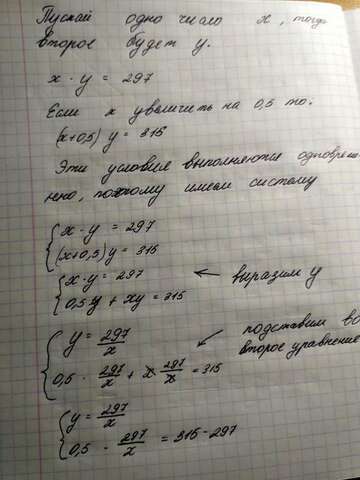 Пускай одно число x, тогда
второе будет y.
x · y = 297
Если x увеличить на 0,5 то:
(x+0,5) y = 315
Эти условия выполняются одновреме
нно, поэтому имеем систему
{ x · y = 297
(x+0,5)y = 315
{ x · y = 297
0,5y + xy = 315
← выразим y
{ y = 297/x
0,5 · 297/x + x · 297/x = 315
← подставим во
второе уравнение
{ y = 297/x
0,5 · 297/x = 315 - 297